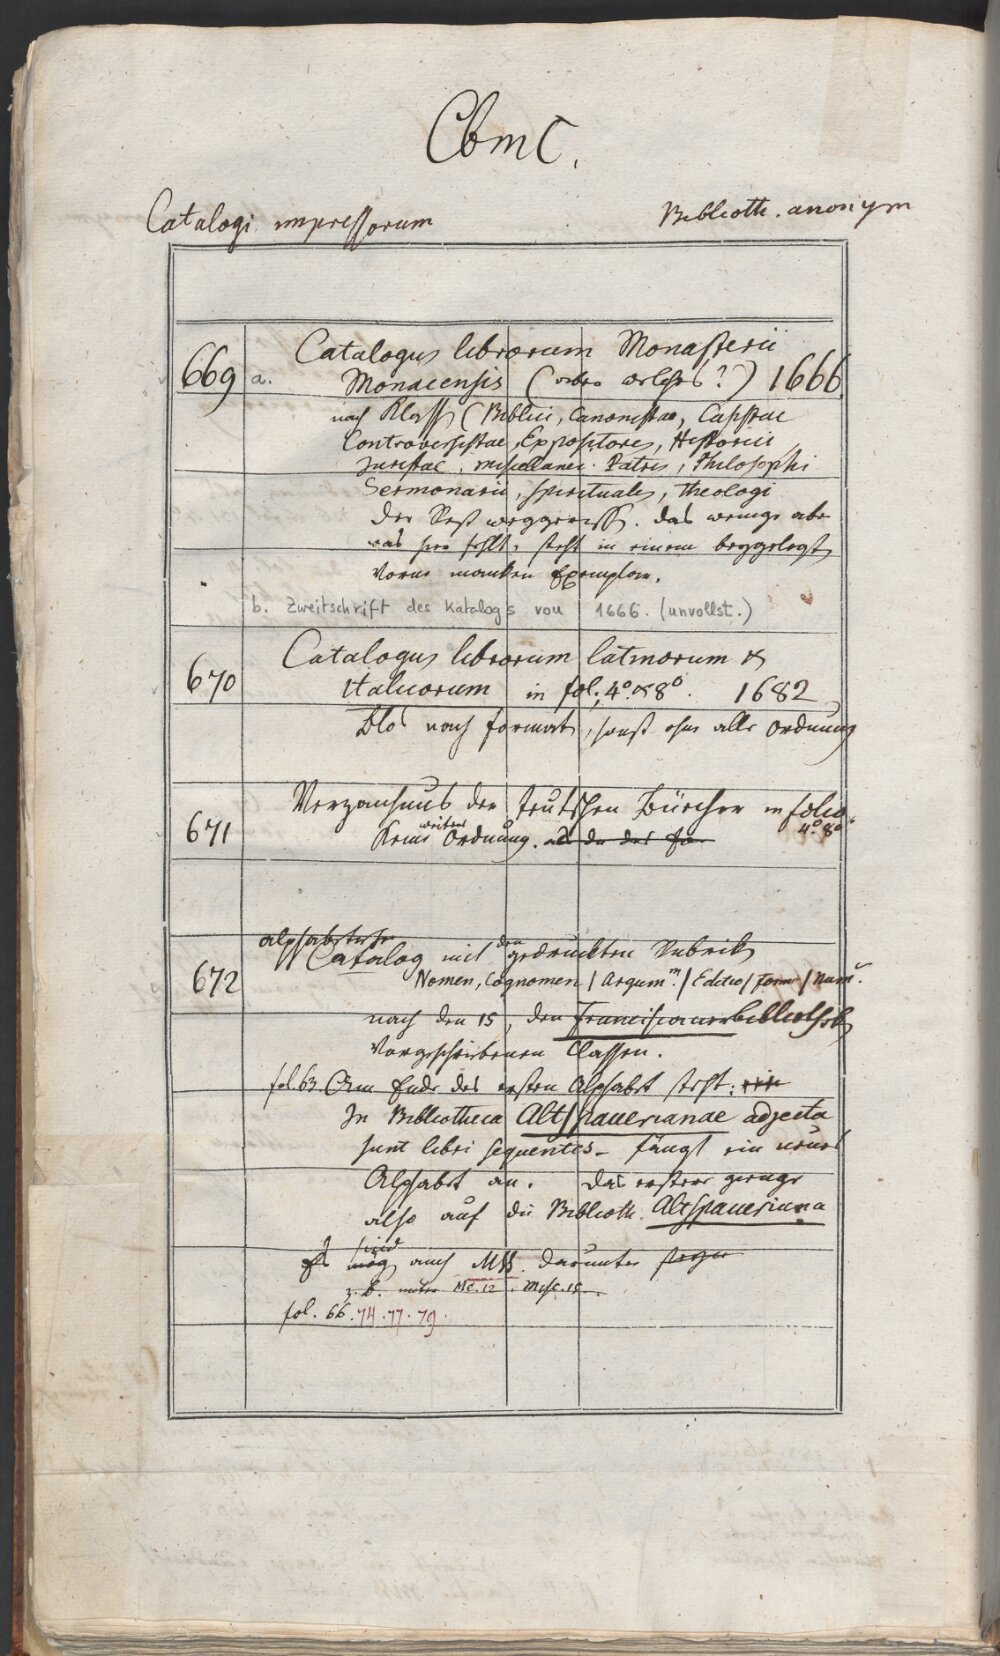 CbmC.
Catalogi impressorum
Biblioth. anonym
669
a. Catalogus librorum Monasterii
Monacensis (oder welches?) 1666.
nach Klassen (Biblici, Canonistae, Casistae
Controversistae, Expositores, Historici
Juristae, Miscellanei. Patres, Philosophi
Sermonarii, Spirituales, Theologi
Der Rest weggerissen. das wenige aber
was hier fehlt, steht in einem beygelegten
vorne manken Exemplar.
b. Zweitschrift des Katalogs von 1666. (unvollst.)
670
Catalogus librorum latinorum &
Italicorum in fol., 4º. & 8º. 1682
Blos nach Format, sonst ohne alle Ordnung
671
Verzaichnus der teutschen Büecher in folio.
4º 8º
Keine weitere Ordnung. als
672
alphabetischer
Catalog mit den gedruckten Rubriken
Nomen, Cognomen / Argum.m / Editio / Forma / Num.
nach den 15, der Franciscanerbibliothek
vorgeschriebenen Classen.
fol 63 Am Ende des ersten Alphabet steht:
In Bibliotheca Altspauerianae adjecta
sunt libri sequentes – fängt ein neues
Alphabet an. das erstere gienge
also auf die Biblioth. Altspaueriana
Es sind mög auch MSS. darunter seyn
z. b. unter MC. 12. Misc. 15.
fol. 66. 74. 77. 79.